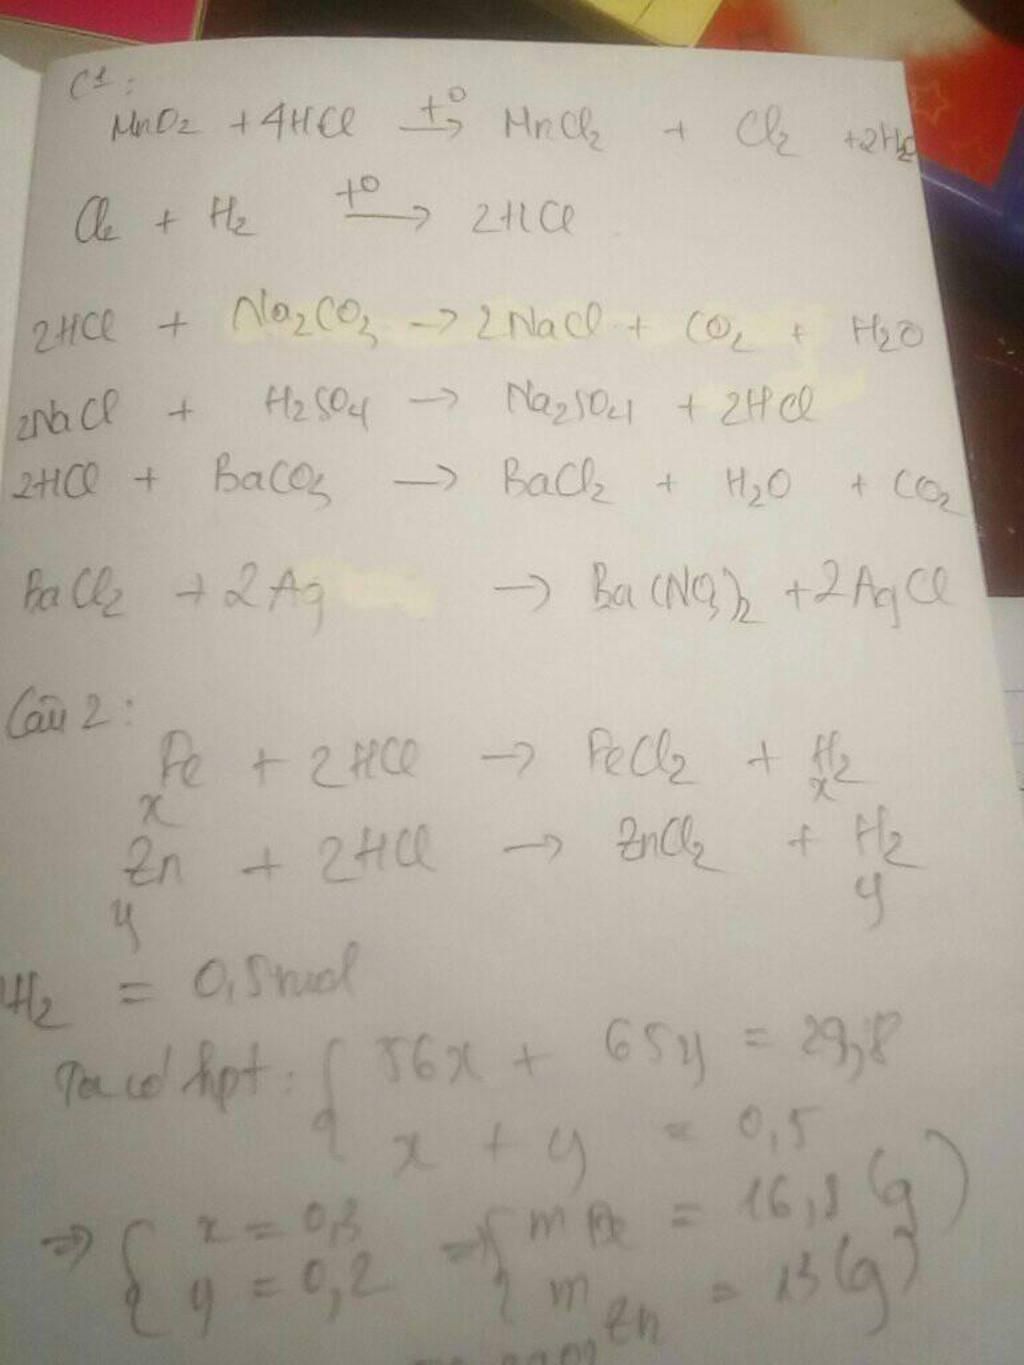 C1:
MnO2 + 4HCl t° → MnCl2 + Cl2 + 2H2O
Cl2 + H2 t° → 2HCl
2HCl + Na2CO3 → 2NaCl + CO2 + H2O
2NaCl + H2SO4 → Na2SO4 + 2HCl
2HCl + BaCO3 → BaCl2 + H2O + CO2
BaCl2 + 2Ag → Ba(NO3)2 + 2AgCl
Câu 2:
Fe + 2HCl → FeCl2 + H2
x x
Zn + 2HCl → ZnCl2 + H2
y y
H2 = 0,5 mol
Ta có hpt: { 56x + 65y = 29,8
x + y = 0,5
⇒ { x = 0,3 ⇒ { mFe = 16,8 (g)
y = 0,2 mZn = 13 (g)